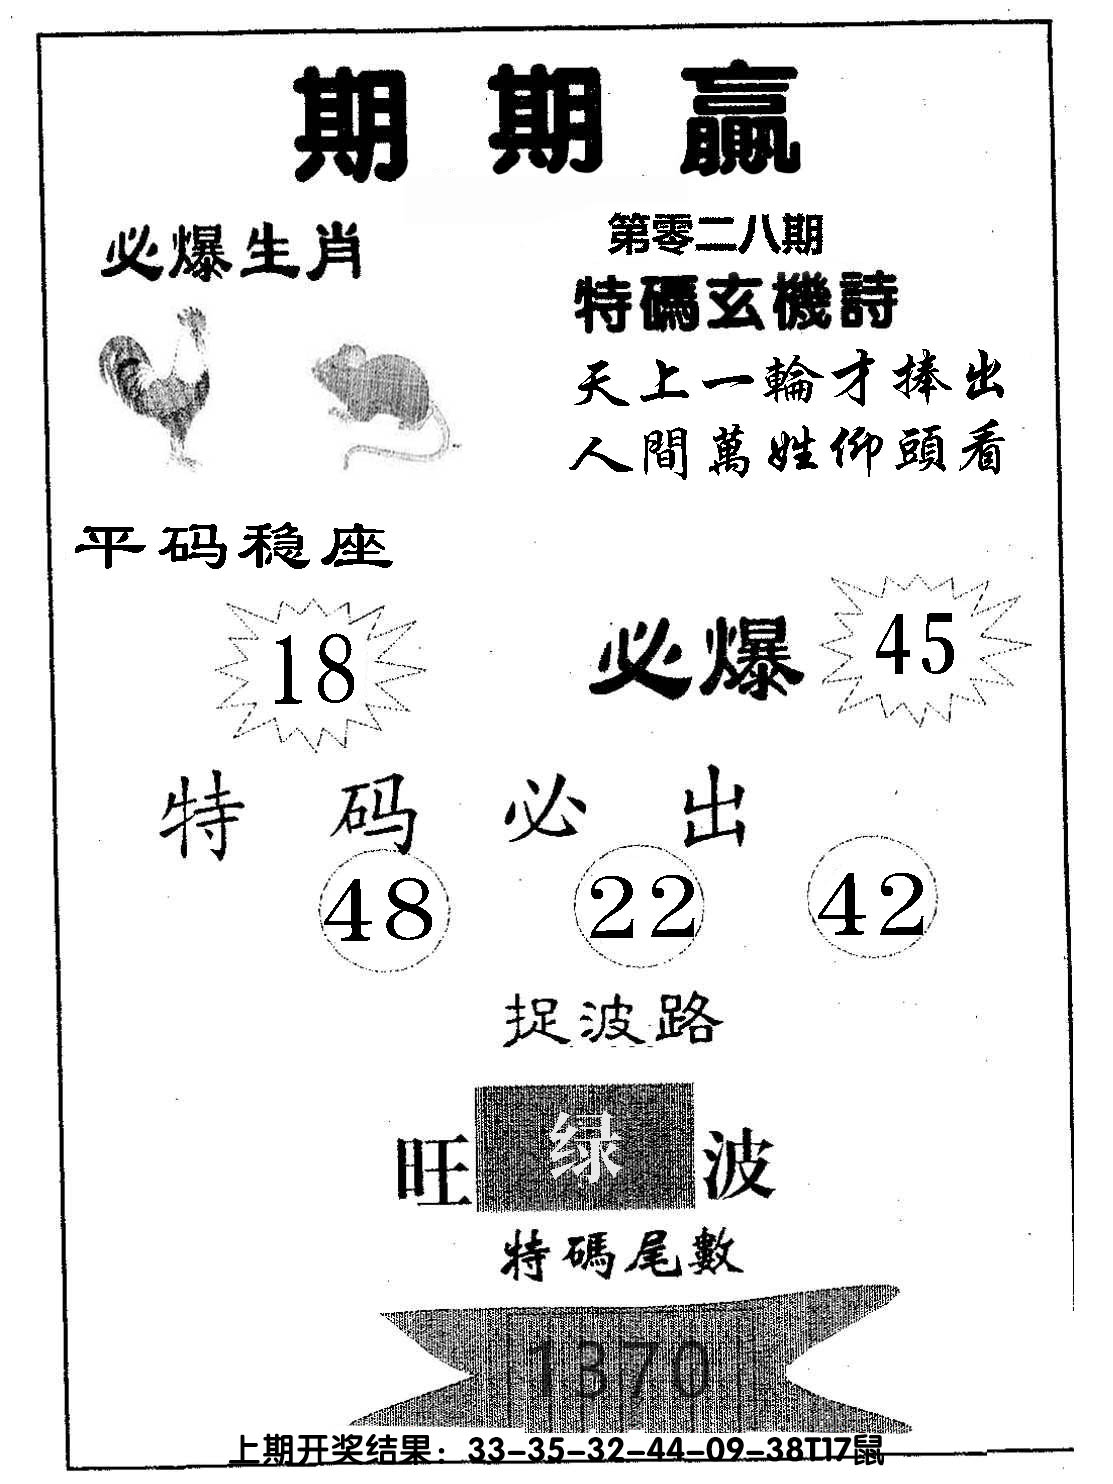 期期赢
必爆生肖
第零二八期
特碼玄機詩
天上一輪才捧出
人間萬姓仰頭看
平码稳座
18
必爆
45
特码必出
48 22 42
捉波路
旺 绿 波
特碼尾數
1370
上期开奖结果：33-35-32-44-09-38T17鼠